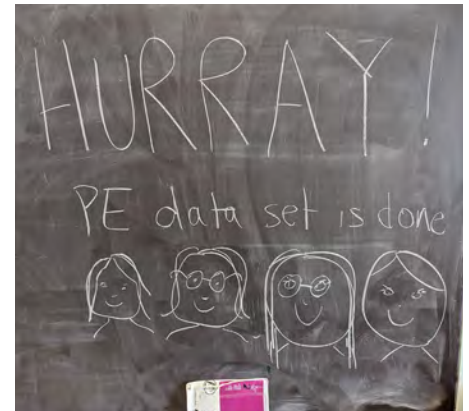 HURRAY!
PE data set is done